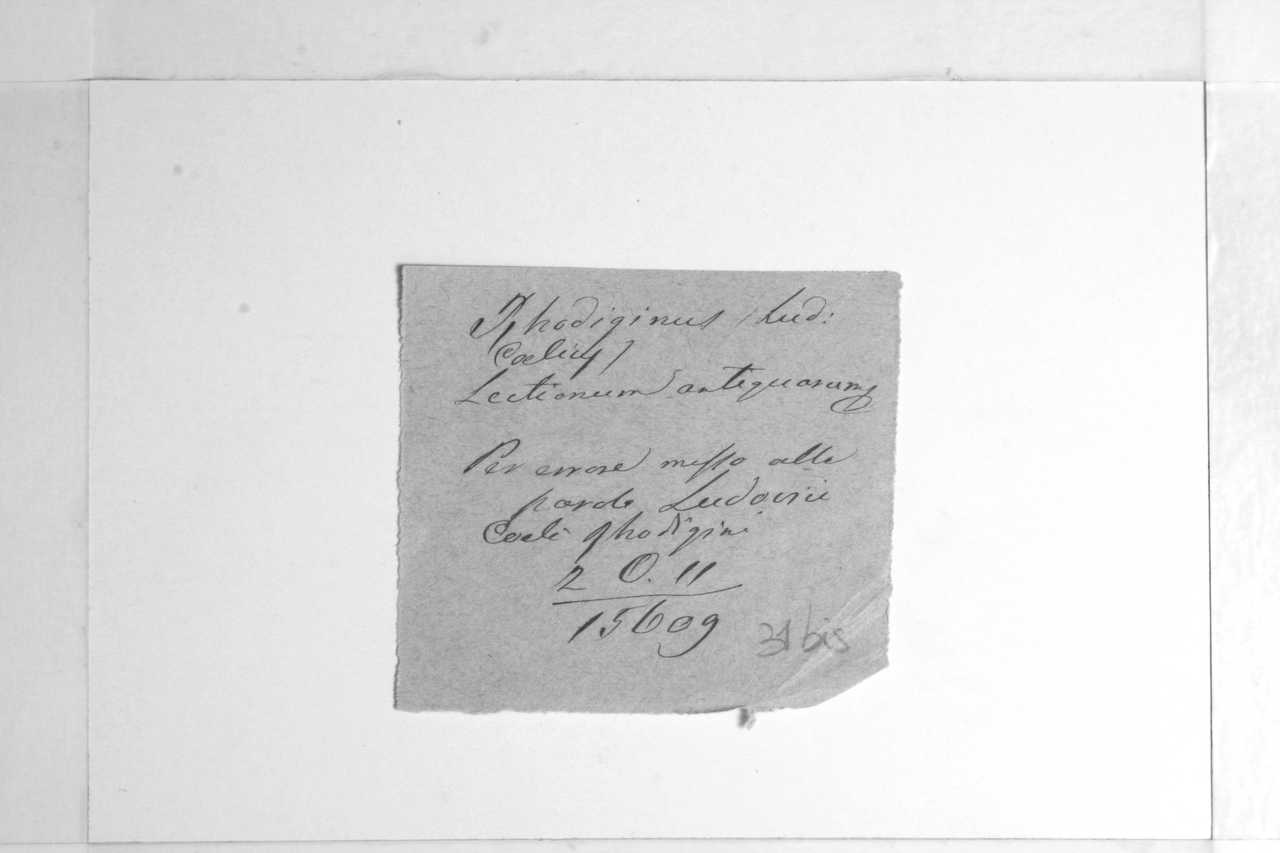 Rhodiginus (Lud:
Coelius)
Lectionum antiquarum
Per errore messo alla
parola Ludovici
Coeli Rhodigini
2 O. 11
15609
31 bis